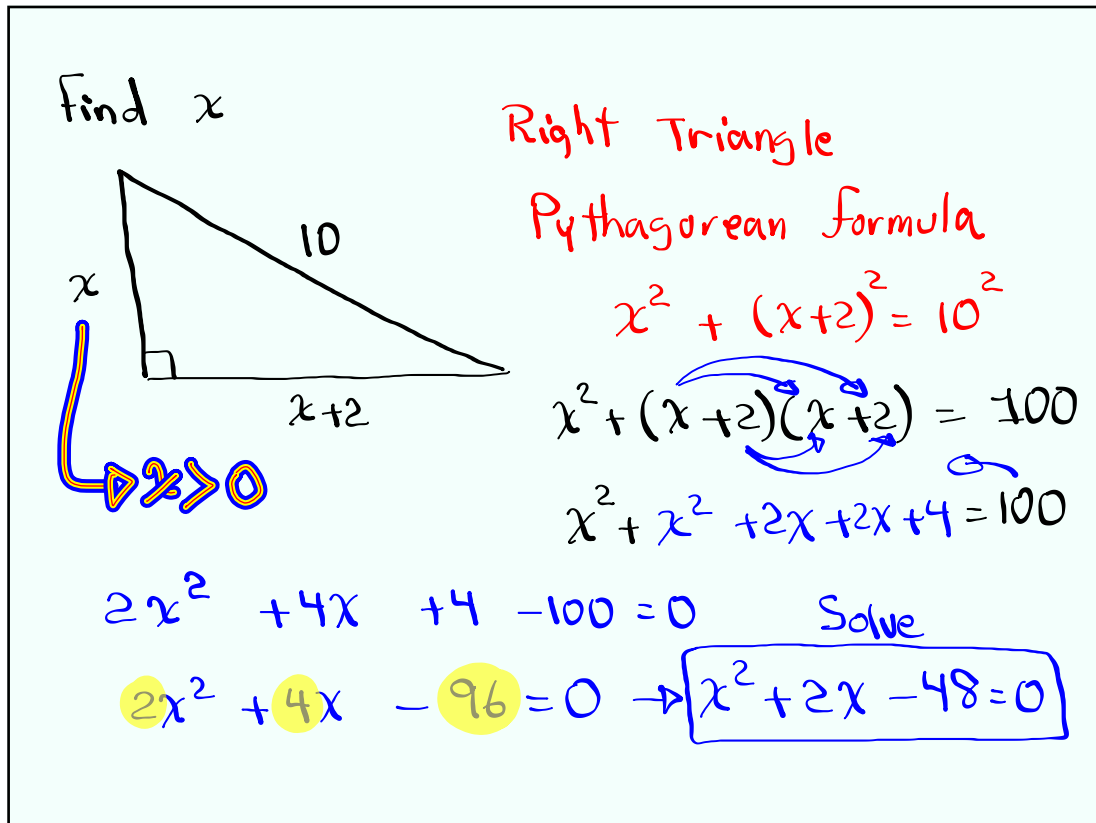 Find x
Right Triangle
Pythagorean formula
10
x
x+2
x>0
x² + (x+2)² = 10²
x² + (x+2)(x+2) = 100
x² + x² +2x+2x+4 = 100
2x² +4x +4 -100 = 0
Solve
2x² + 4x - 96 = 0 → x² + 2x - 48 = 0